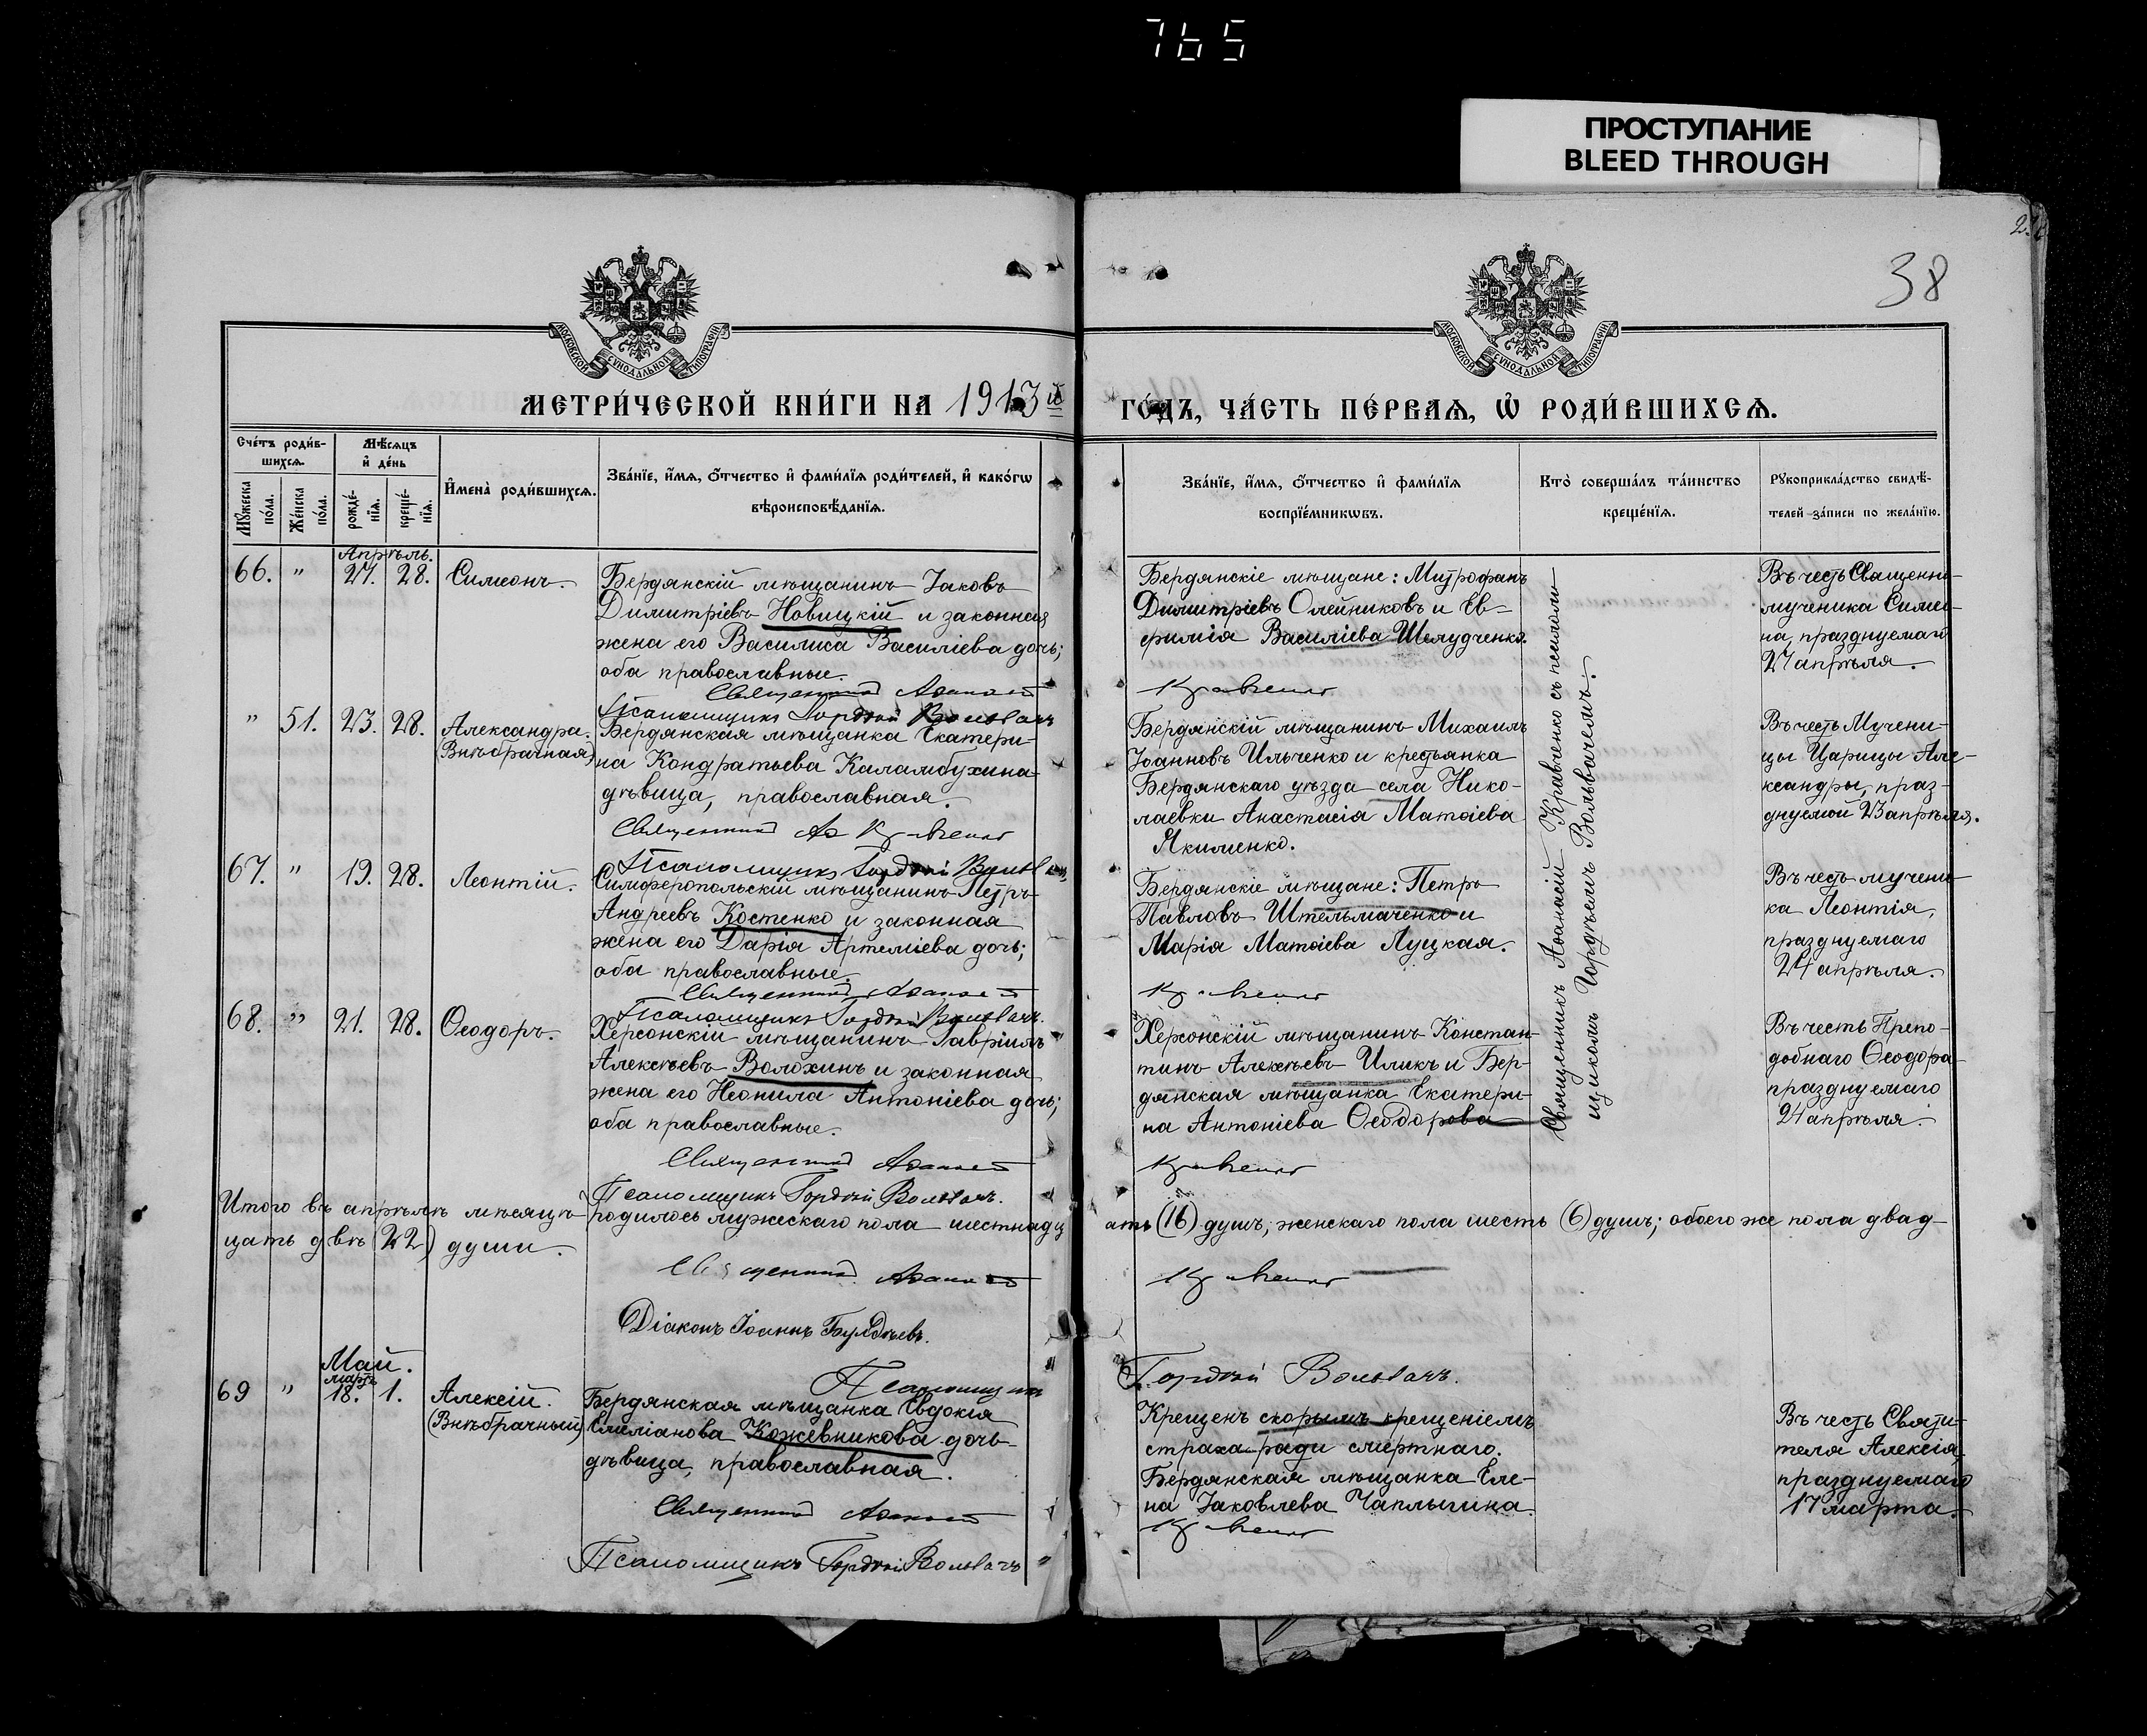 765
ПРОСТУПАНИЕ
BLEED THROUGH
38
МОСКОВСКОЙ СѴНОДАЛЬНОЙ ТИПОГРАФІИ
МОСКОВСКОЙ СѴНОДАЛЬНОЙ ТИПОГРАФІИ
МЕТРИ́ЧЕСКОЙ КНИ́ГИ НА 1913й
ГО́ДЪ, ЧА́СТЬ ПЕ́РВАѦ, Ѡ҆ РОДИ́ВШИХСѦ.
Сче́тъ роди́в-
шихсѧ.
Мꙋ́жеска по́ла.
Же́нска по́ла.
Мѣ́сѧцъ
и҆ де́нь
рожде́-
нїѧ.
креще́-
нїѧ.
И҆мена̀ роди́вшихсѧ.
Зва́нїе, и҆́мѧ, ѻ҆́тчество и҆ фами́лїѧ роди́телей, и҆ како́гѡ
вѣроисповѣ́данїѧ.
Зва́нїе, и҆́мѧ, ѻ҆́тчество и҆ фами́лїѧ
воспрїе́мникѡвъ.
Кто̀ соверша́лъ та́инство
креще́нїѧ.
Рꙋкоприкла́дство свидѣ́-
телей за́писи по жела́нїю.
Апрѣль.
66. " 27. 28. Симеонъ.
Бердянскій мѣщанинъ Іаковъ
Димитріевъ Новицкій и законная
жена его Василиса Василіева дочь;
оба православные.
Священникъ Аѳанасій
Псаломщикъ Гордѣй Вольвачъ
Бердянскіе мѣщане: Митрофанъ
Димитріевъ Олейниковъ и Ев-
фимія Василіева Шелудченко.
Кравченко
Въ честь Священно-
мученика Симео-
на, празднуемаго
27 апрѣля.
" 51. 23. 28. Александра.
(Внѣбрачная)
Бердянская мѣщанка Екатери-
на Кондратьева Каламбухина
дѣвица, православная.
Священникъ Аѳ Кравченко
Псаломщикъ Гордѣй Вольвачъ
Бердянскій мѣщанинъ Михаилъ
Іоанновъ Ильченко и крестьянка
Бердянскаго уѣзда села Нико-
лаевки Анастасія Матѳіева
Якименко.
Въ честь Мучени-
цы Царицы Але-
ксандры, праз-
днуемой 23 апрѣля.
67. " 19. 28. Леонтій.
Симферопольскій мѣщанинъ Петръ
Андреевъ Костенко и законная
жена его Дарія Артеміева дочь;
оба православные.
Священникъ Аѳанасій
Псаломщикъ Гордѣй Вольвачъ.
Бердянскіе мѣщане: Петръ
Павловъ Штельмаченко и
Марія Матѳіева Луцкая.
Кравченко
Въ честь мучени-
ка Леонтія,
празднуемаго
24 апрѣля.
68. " 21. 28. Ѳеодоръ.
Херсонскій мѣщанинъ Гавріилъ
Алексѣевъ Волохинъ и законная
жена его Неонила Антоніева дочь;
оба православные.
Священникъ Аѳанасій
Псаломщикъ Гордѣй Вольвачъ.
Херсонскій мѣщанинъ Констан-
тинъ Алексѣевъ Иликъ и Бер-
дянская мѣщанка Екатери-
на Антоніева Ѳеодорова
Кравченко
Въ честь Препо-
добнаго Ѳеодора
празднуемаго
24 апрѣля.
Священникъ Аѳанасій Кравченко съ псалом-
щикомъ Гордѣемъ Вольвачемъ.
Итого въ апрѣлѣ мѣсяцѣ родилось мужескаго пола шестнадц
ать (16) душъ, женскаго пола шесть (6) душъ; обоего же пола двад-
цать двѣ (22) души.
Священникъ Аѳанасій
Кравченко
Діаконъ Іоаннъ
Псаломщикъ
Гордѣй Вольвачъ.
Май.
мартъ
69 " 18. 1. Алексій.
(Внѣбрачный)
Бердянская мѣщанка Евдокія
Емеліанова Кожевникова дочь
дѣвица, православная.
Священникъ Аѳанасій
Псаломщикъ Гордѣй Вольвачъ
Крещенъ скорымъ крещеніемъ
страха ради смертнаго.
Бердянская мѣщанка Еле-
на Іаковлева Чаплыгина.
Кравченко
Въ честь Святи-
теля Алексія,
празднуемаго
17 марта.